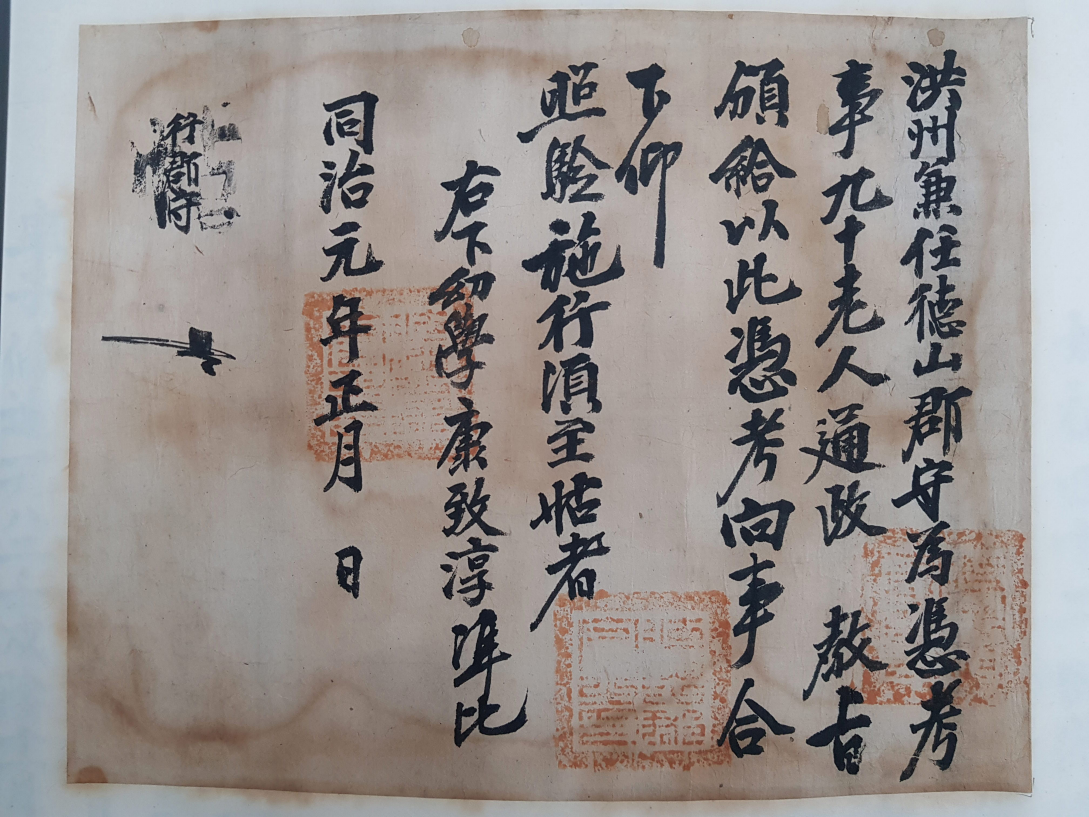 洪州兼任德山郡守為憑考
事九十老人通政 敎旨
頒給以此憑考向事合
下仰
照驗施行須至帖者
右下幼學康致淳準此
同治元年正月 日
行郡守